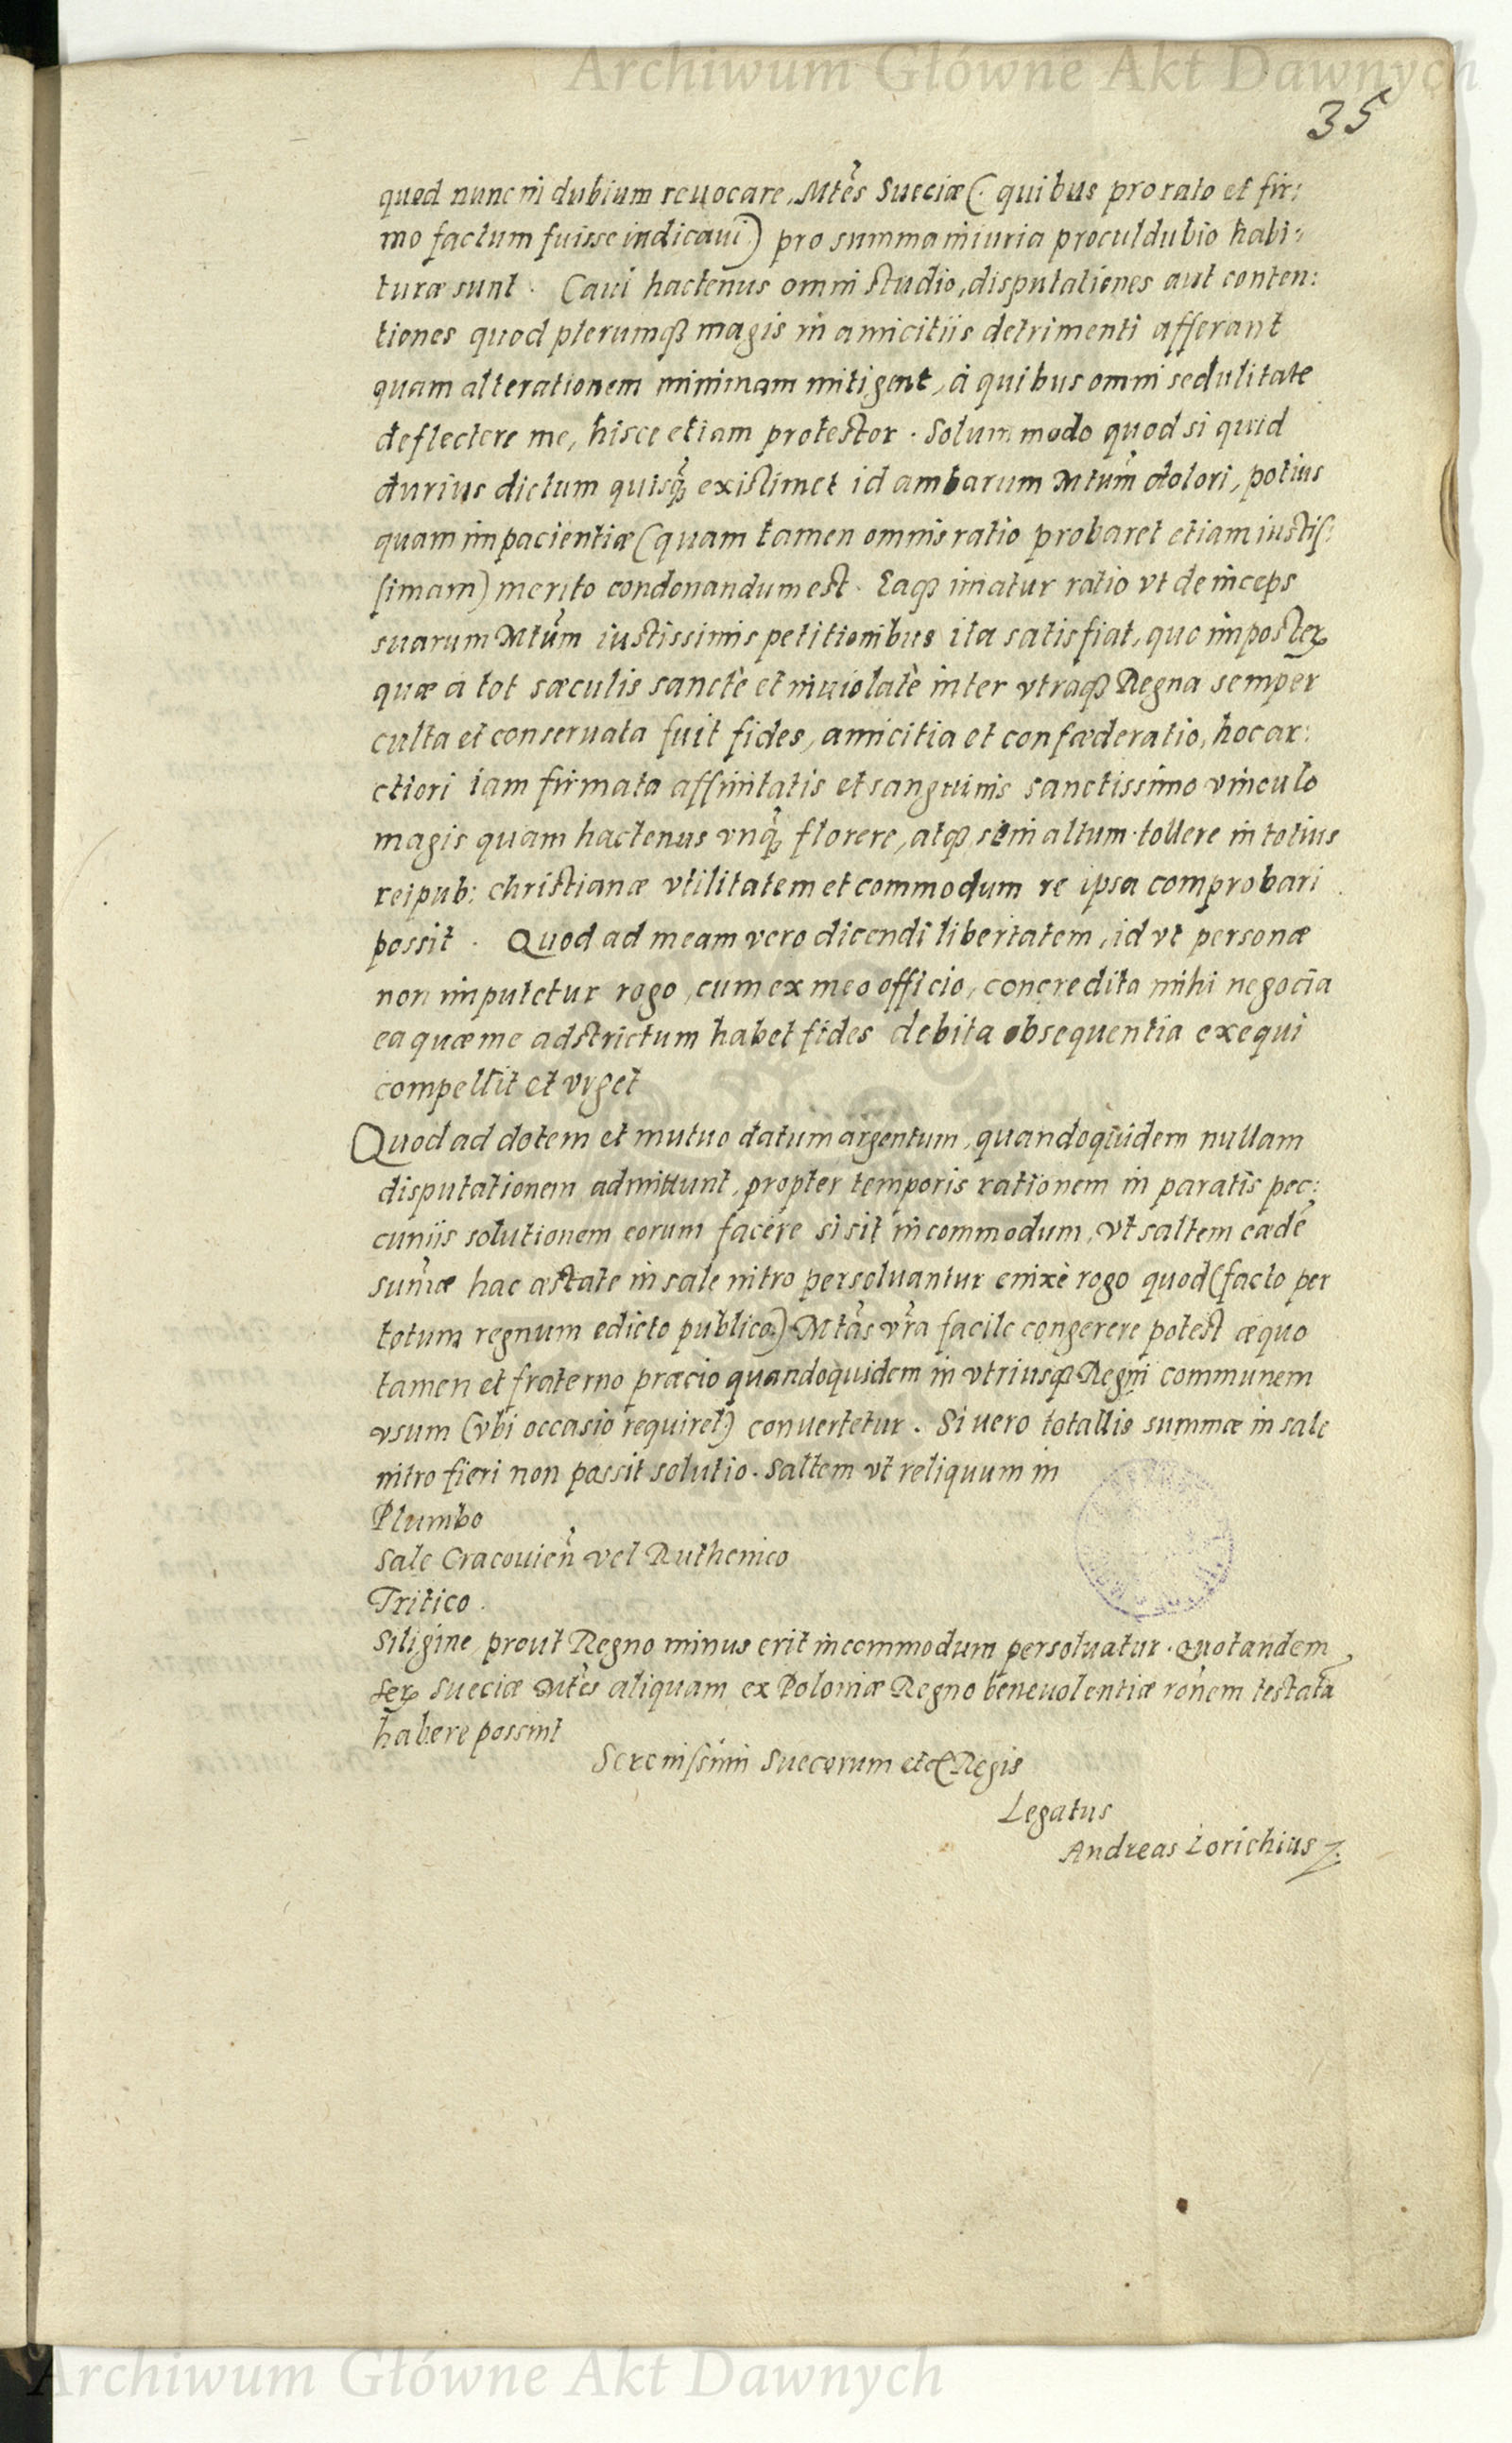 Archiwum Główne Akt Dawnych
35
quod nunc in dubium reuocare, Mtẽs Sueciæ (quibus pro rato et fir:
mo factum fuisse indicaui) pro summa iniuria proculdubio habi:
turæ sunt. Caui hactenus omni studio, disputationes aut conten:
tiones quod plerumq̃ magis in amicitiis detrimenti afferant
quam alterationem minimam mitigent, à quibus omni sedulitate
deflectere me, hisce etiam protestor. Solum modo quod si quid
durius dictum quisq̃ existimet id ambarum Mtum̃ dolori, potius
quam impacientiæ (quam tamen omnis ratio probaret etiam iustis:
simam) merito condonandum est. Eaq̃ inatur ratio vt deinceps
suarum Mtũm iustissimis petitionibus ita satisfiat, quo imposter
quæ a tot sæculis sanctè et inuiolatè inter vtraq̃ Regna semper
culta et conseruata fuit fides, amicitia et confæderatio, hoc ar:
ctiori iam firmata affinitatis et sanguinis sanctissimo vinculo
magis quam hactenus vnq̃ florere, atq̃ se in altum tollere in totius
reipub: christianæ vtilitatem et commodum re ipsa comprobari
possit. Quod ad meam vero dicendi libertatem, id vt personæ
non imputetur rogo, cum ex meo officio, concredita mihi negocia
ea quæ me adstrictum habet fides debita obsequentia exequi
compellit et vrget
Quod ad dotem et mutuo datum argentum, quandoquidem nullam
disputationem admittunt, propter temporis rationem in paratis pec:
cuniis solutionem eorum facere si sit incommodum, vt saltem eædẽ
sum̃æ hac æstate in sale nitro persoluantur enixè rogo quod (facto per
totum regnum edicto publico) Mtãs vr̃a facile congerere potest æquo
tamen et fraterno præcio quandoquidem in vtriusq̃ Regni communem
vsum (vbi occasio requiret) conuertetur. Si uero totallis summæ in sale
nitro fieri non possit solutio. Saltem vt reliquum in
Plumbo
Sale Cracouień vel Ruthenico
Tritico.
Siligine, prout Regno minus erit incommodum persoluatur. quo tandem
Ser Sueciæ Mtẽs aliquam ex Poloniæ Regno beneuolentiæ rõnem testatã
habere possint
Serenissimi Suecorum etc Regis
Legatus
Andreas Lorichius
Archiwum Główne Akt Dawnych